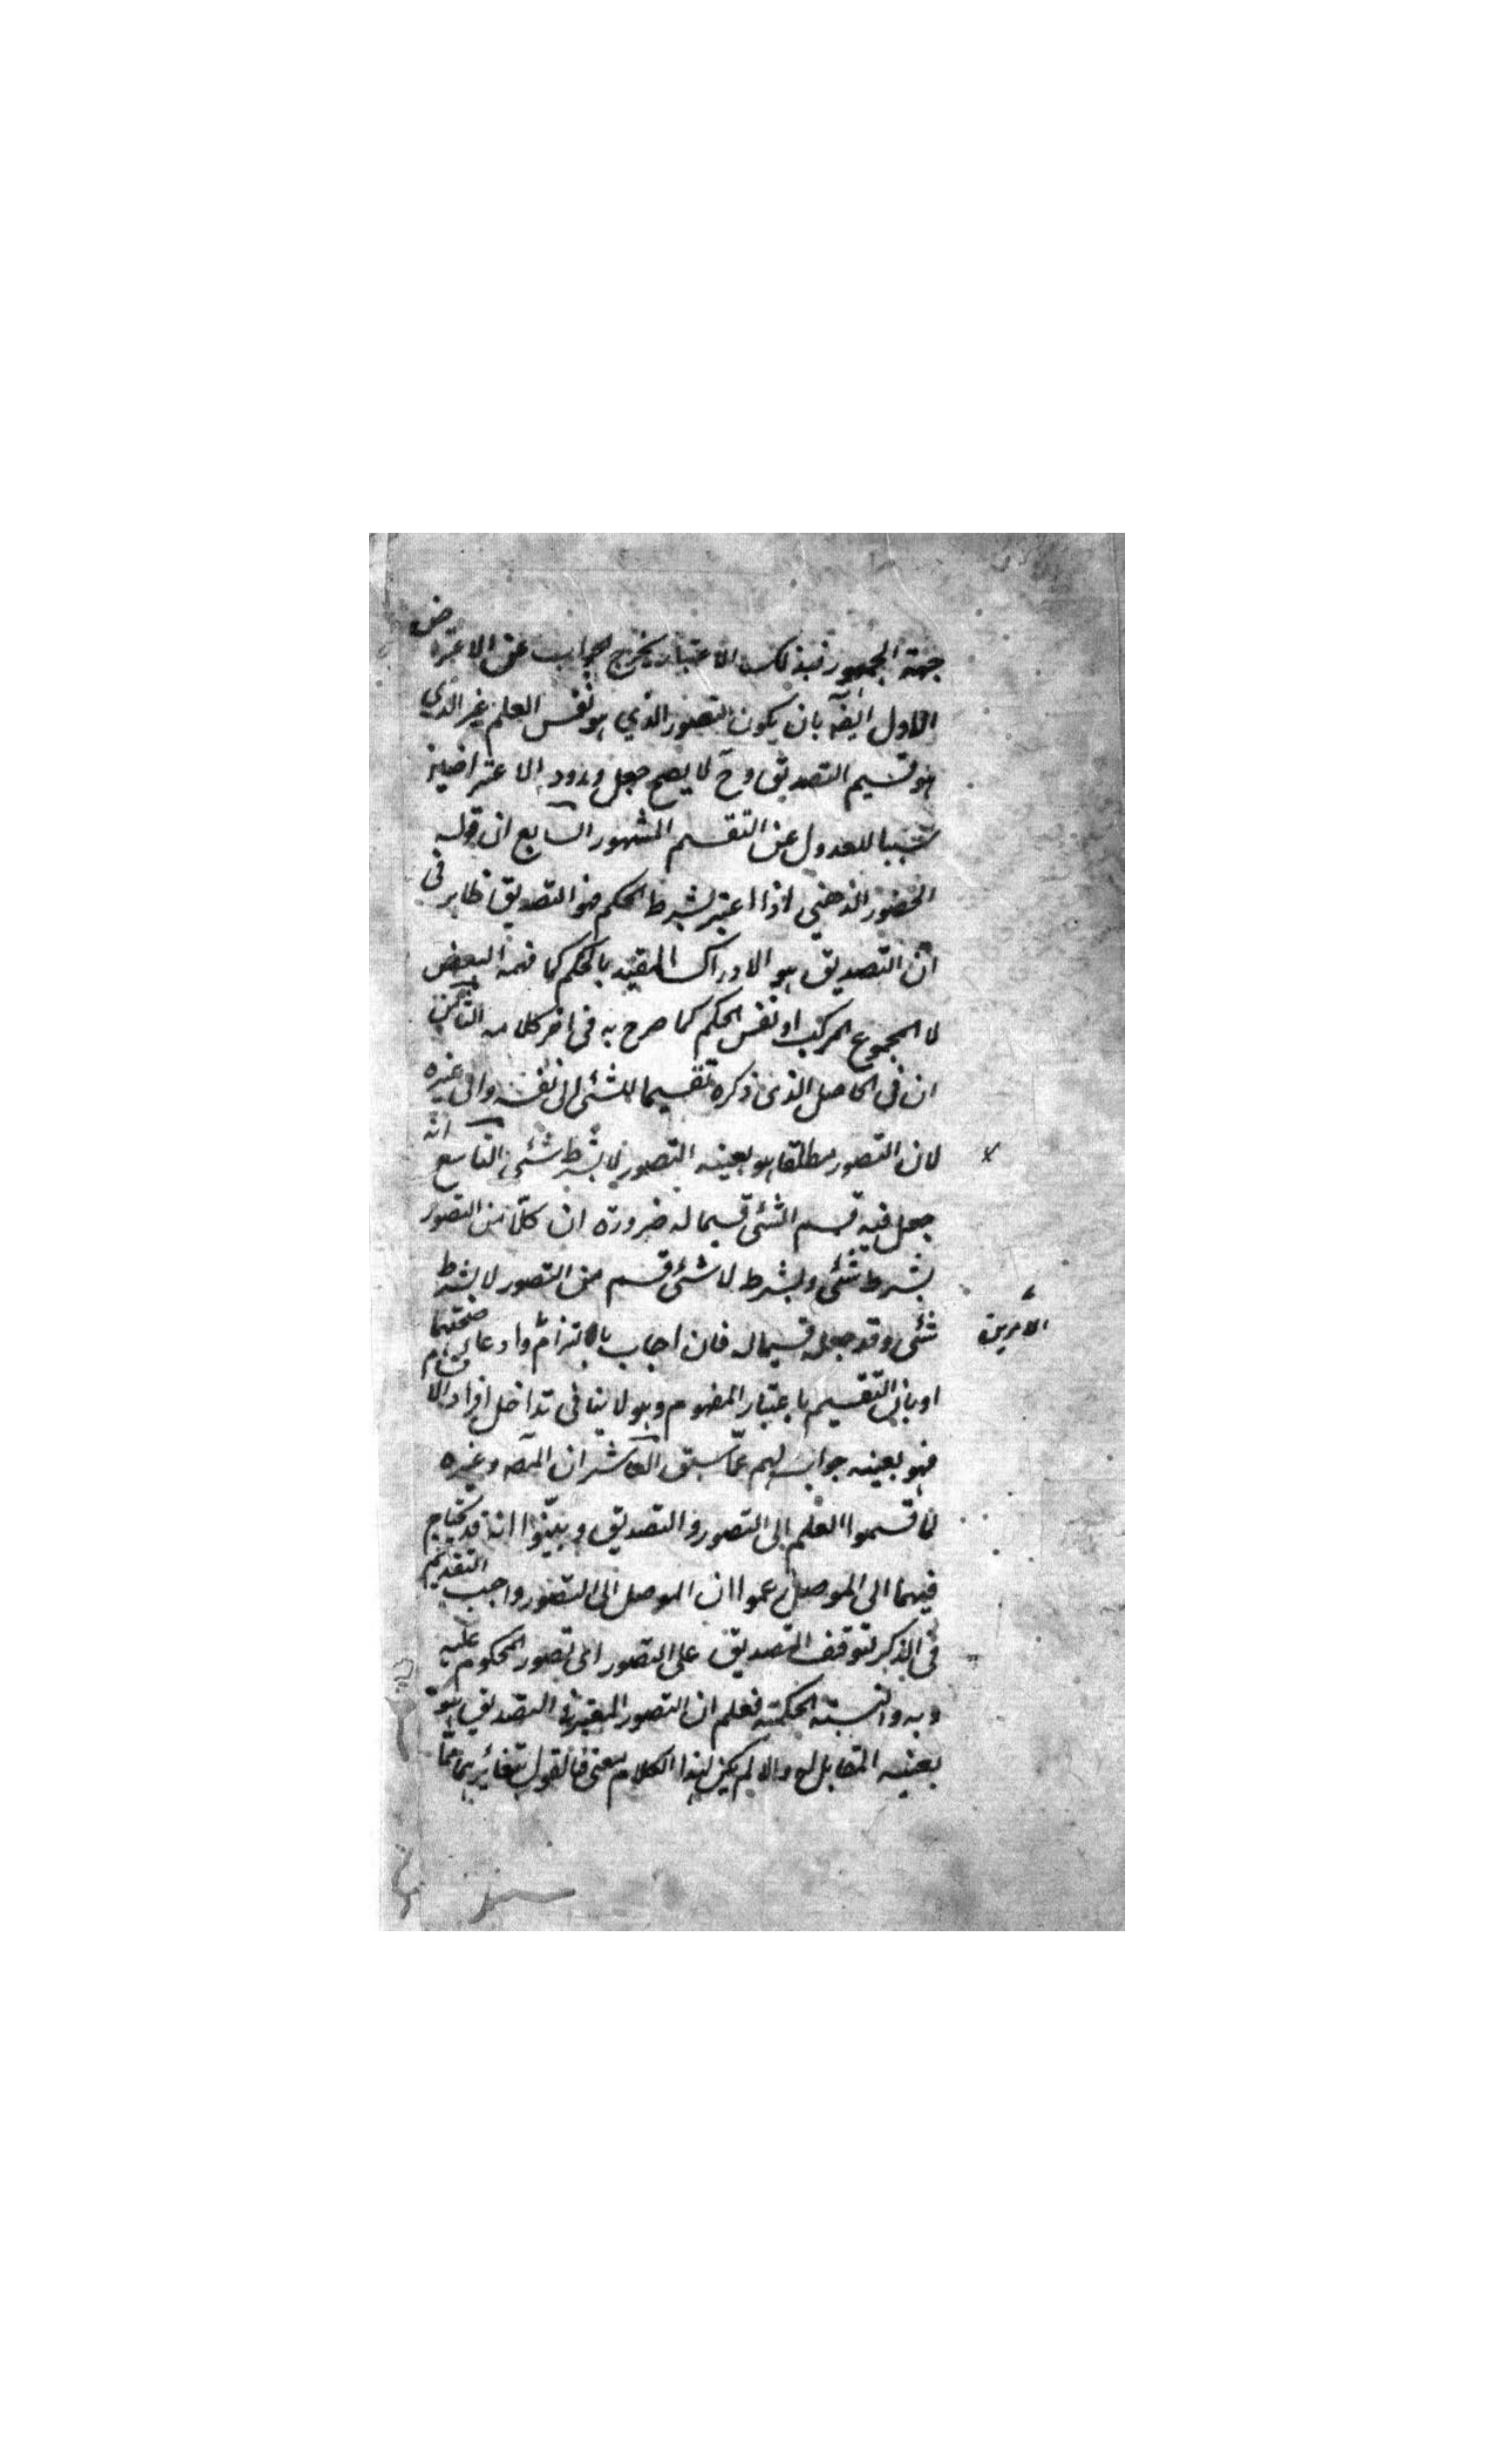 جهة الجمهور فبذلك الاعتبار يخرج الجواب عن الاعتراض
الاول ايضا بان يكون التصور الذي هو نفس العلم غير الذي
هو قسيم التصديق وح لا يصح جعل ورود الاعتراضين
سببا للعدول عن التقسيم المشهور السابع ان قوله
الحضور الذهني اذا اعتبر بشرط الحكم فهو التصديق ظاهر في
ان التصديق هو الادراك المقيد بالحكم كما فهمه البعض
لا المجموع المركب او نفس الحكم كما صرح به في اخر كلامه الثامن
ان في الحاصل الذي ذكره تقسيما للشئ الى نفسه والى غيره
لان التصور مطلقا هو بعينه التصور لا بشرط شئ التاسع انه
جعل فيه قسم الشئ قسيما له ضرورة ان كلا من التصور
بشرط شئ وبشرط لا شئ قسم من التصور لا بشرط
شئ وقد جعله قسيما له فان اجاب بالتزام وادعا صحتهما
او بان التقسيم باعتبار المفهوم وهو لا ينافي تداخل افراد الاقسام
الامرين
فهو بعينه جواب لهم عما سبق العاشر ان المص وغيره
لما قسموا العلم الى التصور والتصديق وبينوا انه قد يحتاج
فيهما الى الموصل زعموا ان الموصل الى التصور واجب التقديم
في الذكر لتوقف التصديق على التصور اى تصور المحكوم عليه
وبه والنسبة الحكمية فعلم ان التصور المعتبر في التصديق هو
بعينه المقابل له والا لم يكن لهذا الكلام معنى فالقول بتغايرهما مما